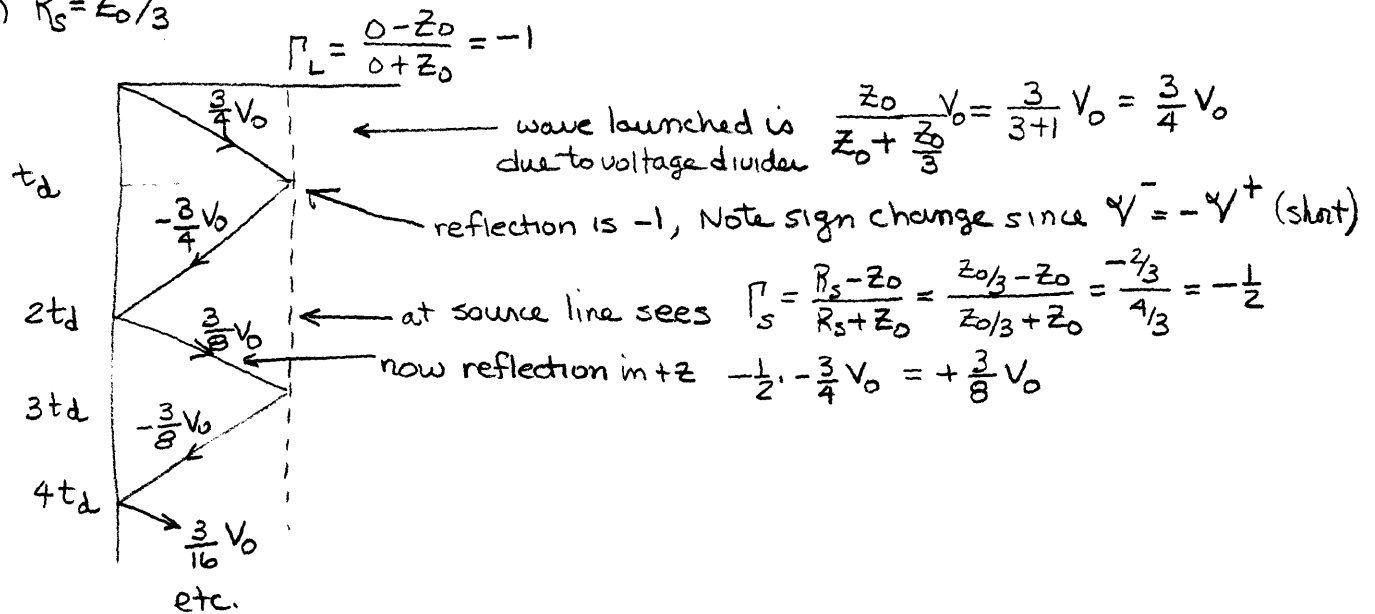 ) R_S = Z_0/3
Γ_L = (0 - Z_0)/(0 + Z_0) = -1
3/4 V_0
wave launched is due to voltage divider Z_0/(Z_0 + Z_0/3) V_0 = 3/(3+1) V_0 = 3/4 V_0
t_d
-3/4 V_0
reflection is -1, Note sign change since V^- = -V^+ (short)
2t_d
3/8 V_0
at source line sees Γ_S = (R_S - Z_0)/(R_S + Z_0) = (Z_0/3 - Z_0)/(Z_0/3 + Z_0) = (-2/3)/(4/3) = -1/2
now reflection in +z -1/2 · -3/4 V_0 = +3/8 V_0
3t_d
-3/8 V_0
4t_d
3/16 V_0
etc.